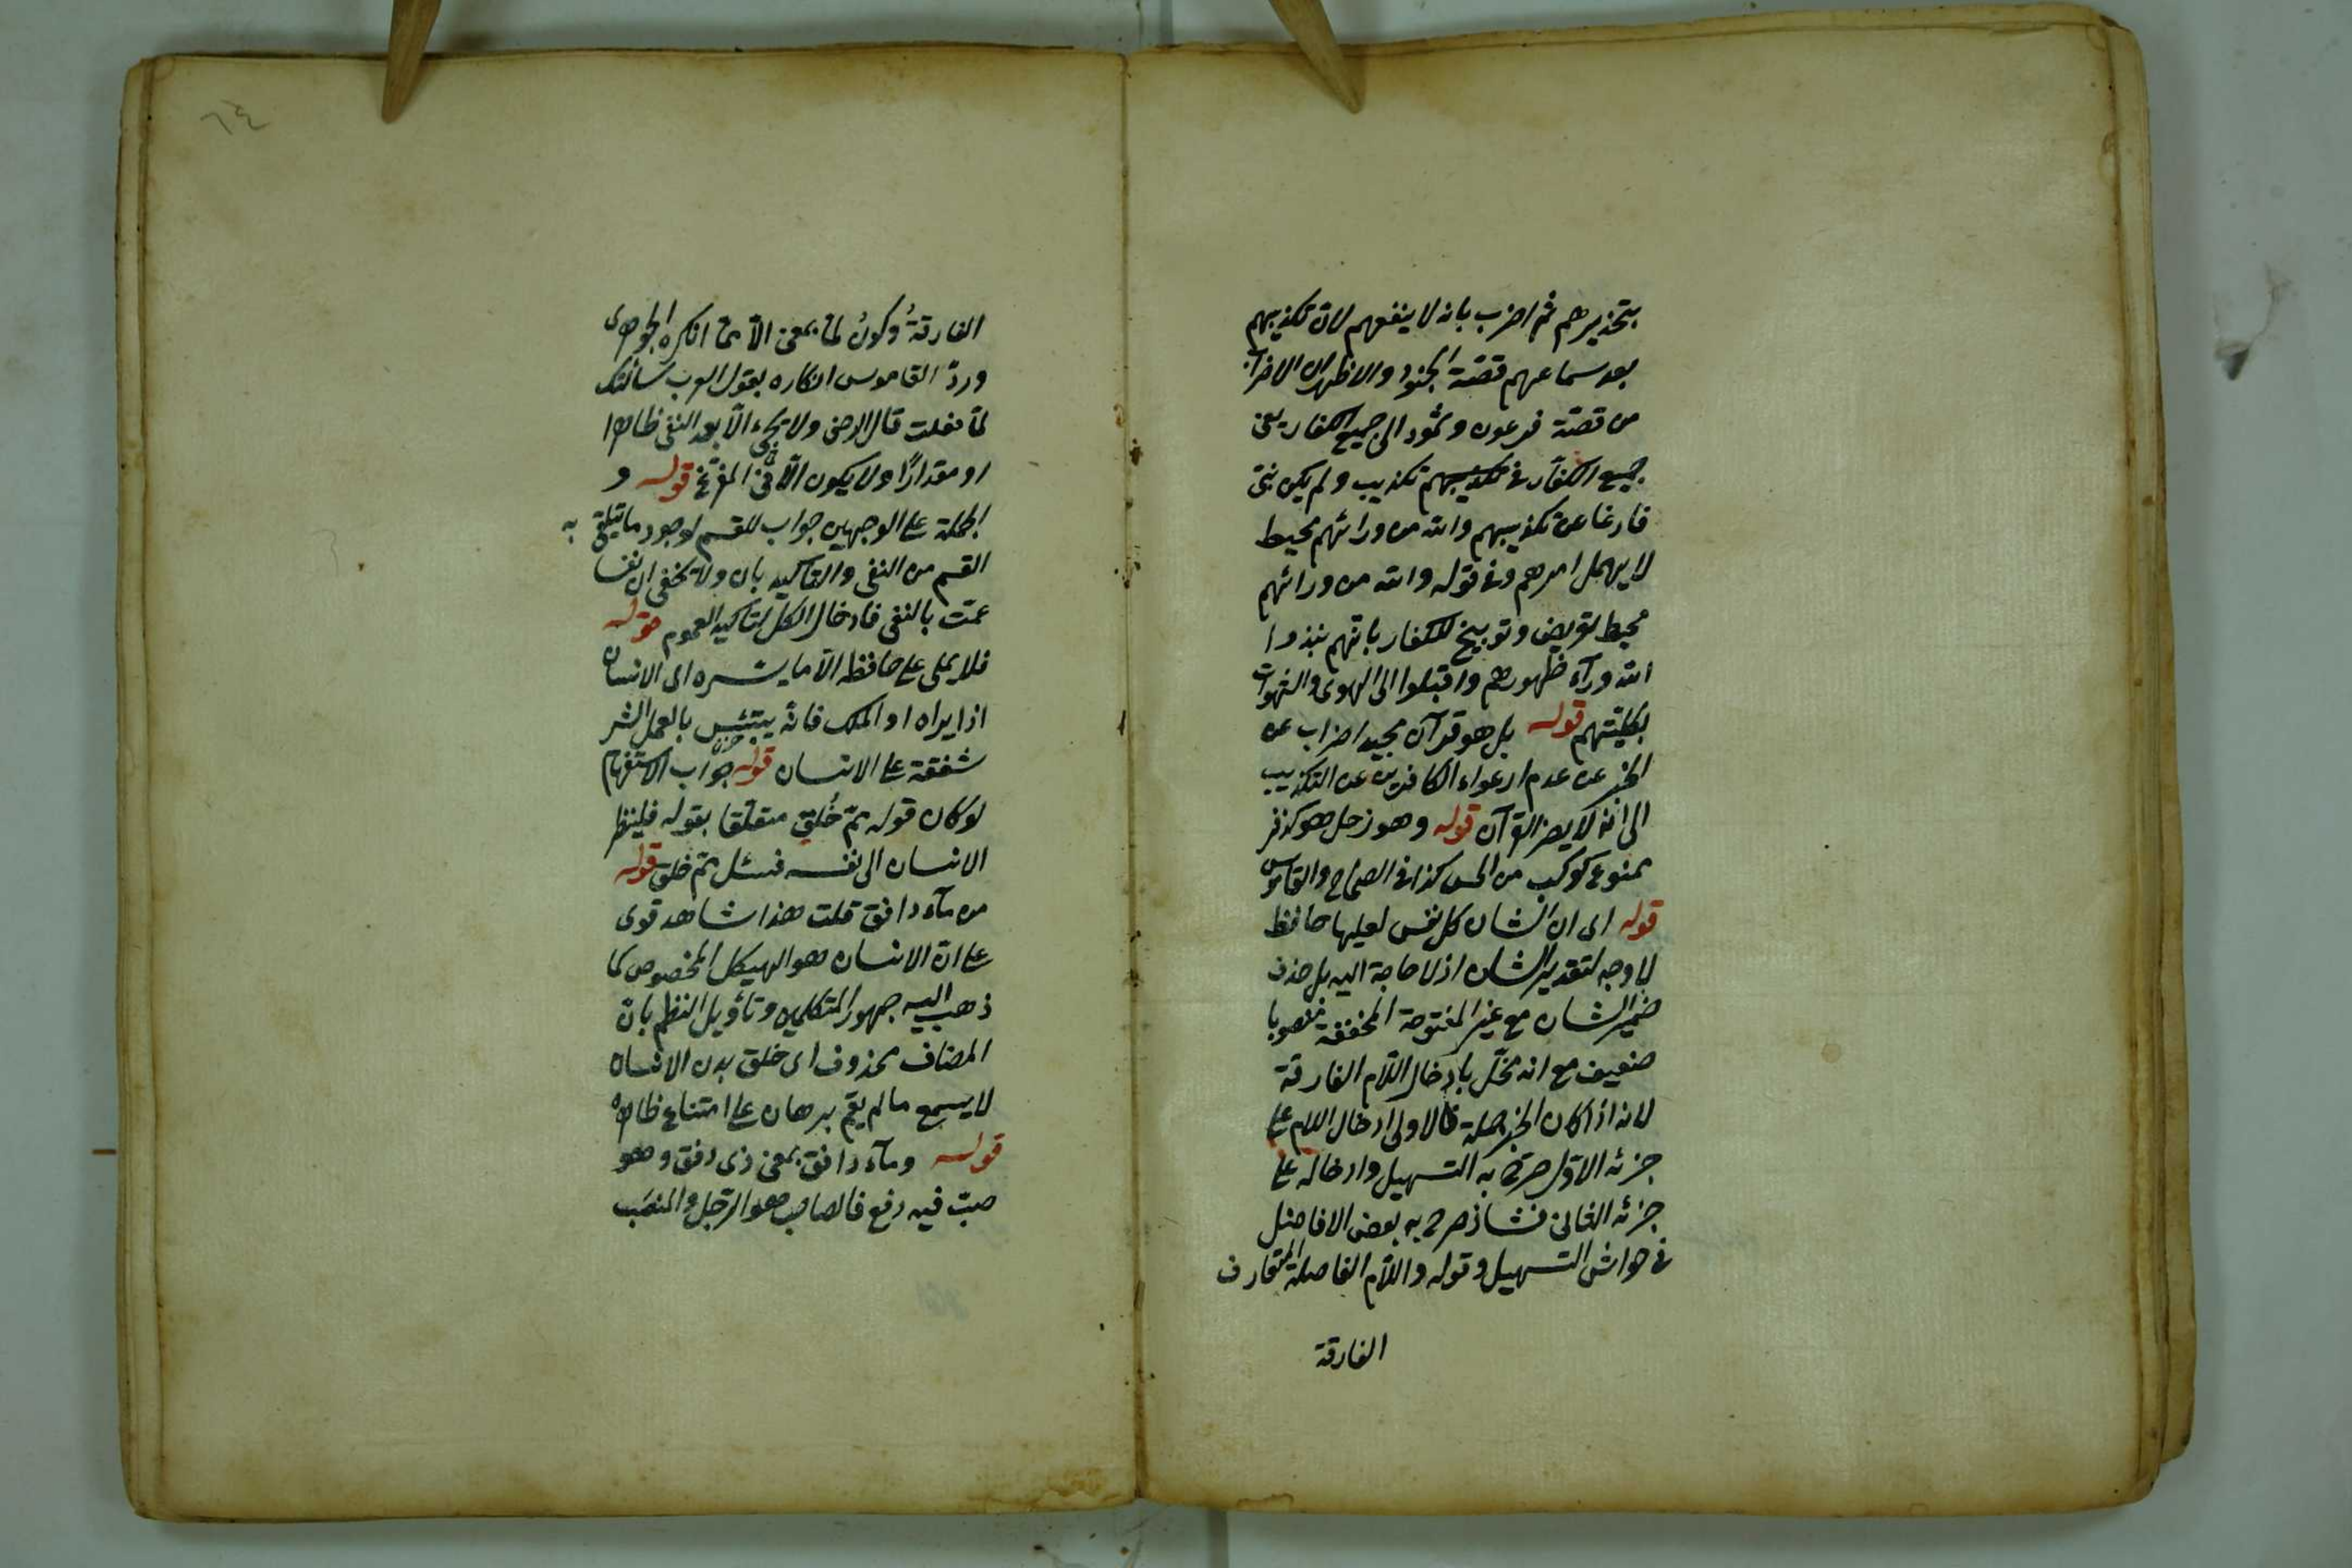 بتحذيرهم ثم اضرب بانه لا ينفعهم لان تكذيبهم
بعد سماعهم قصة الجنود والاظهر ان الاضراب
من قصة فرعون وثمود الى جميع الكفار يعنى
جميع الكفار فى تكذيبهم تكذيب ولم يكن نبى
فارغا عن تكذيبهم والله من ورائهم محيط
لا يهمل امرهم وفى قوله والله من ورائهم
محيط تعريض وتوبيخ للكفار بانهم نبذوا
الله ورآء ظهورهم واقبلوا الى الهوى والشهوات
بكليتهم قوله بل هو قرآن مجيد اضراب عن
الخبر عن عدم ارعواء الكافرين عن التكذيب
الى انه لا يضر القرآن قوله وهو زحل هو كزفر
ممنوع كوكب من الخنس كذا فى الصحاح والقاموس
قوله اى ان الشان كل نفس لعليها حافظ
لا وجه لتقدير الشان اذ لا حاجة اليه بل حذف
ضمير الشان مع غير المفتوحة المخففة منصوبا
ضعيف مع انه مخل بادخال اللام الفارقة
لانه اذا كان الخبر جملة فالاولى ادخال اللام على
جزئه الاول صرح به التسهيل وادخاله على
جزئه الثانى شاذ صرح به بعض الافاضل
فى حواشى التسهيل وقوله واللام الفاصلة المتعارف
الفارقة
٦٤
الفارقة وكون لما بمعنى الا مما انكره الجوهرى
ورد القاموس انكاره بقول العرب سألتك
لما فعلت قال الرضى ولا يجىء الا بعد النفى ظاهرا
او مقدرا ولا يكون الا فى المفرغ قوله و
الجملة على الوجهين جواب للقسم لوجود ما يتلقى به
القسم من النفى والتاكيد بان ولا يخفى ان نفسا
عمت بالنفى فادخال الكل لتاكيد العموم قوله
فلا يملى على حافظه الا ما يسره اى الانسان
اذا يراه او الملك فانه يبتئس بالعمل الشر
شفقة على الانسان قوله جواب الاستفهام
لو كان قوله مم خلق متعلقا بقوله فلينظر
الانسان الى نفسه فسئل مم خلق قوله
من مآء دافق قلت هذا شاهد قوى
على ان الانسان هو الهيكل المخصوص كما
ذهب اليه جمهور المتكلمين وتأويل النظم بان
المضاف محذوف اى خلق بدن الانسان
لا يسمع ما لم يقم برهان على امتناع ظاهره
قوله ومآء دافق بمعنى ذى دفق وهو
صب فيه دفع فالصاب هو الرجل والمنصب